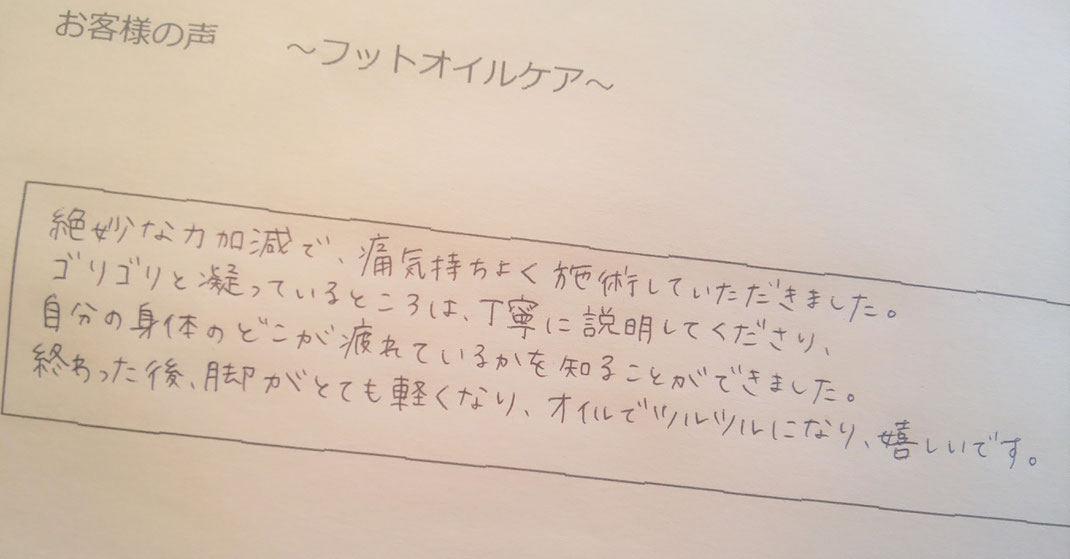 お客様の声　　～フットオイルケア～
絶妙な力加減で、痛気持ちよく施術していただきました。
ゴリゴリと凝っているところは、丁寧に説明してくださり、
自分の身体のどこが疲れているかを知ることができました。
終わった後、脚がとても軽くなり、オイルでツルツルになり、嬉しいです。